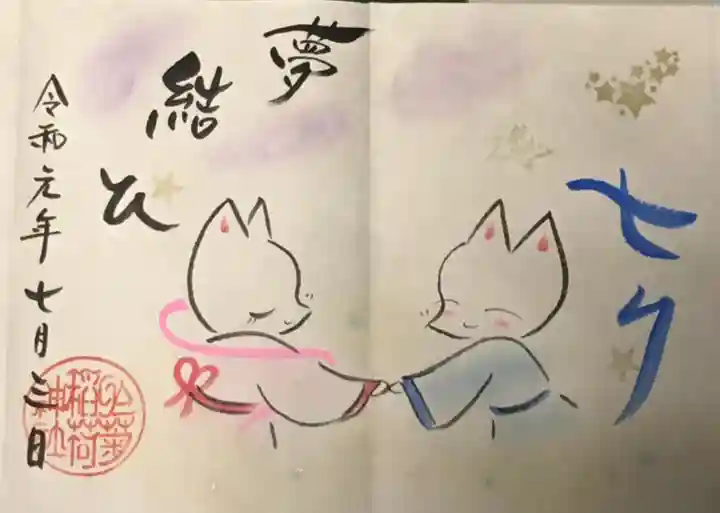 七夕
夢結ひ
令和元年七月三日
於菊稲荷神社